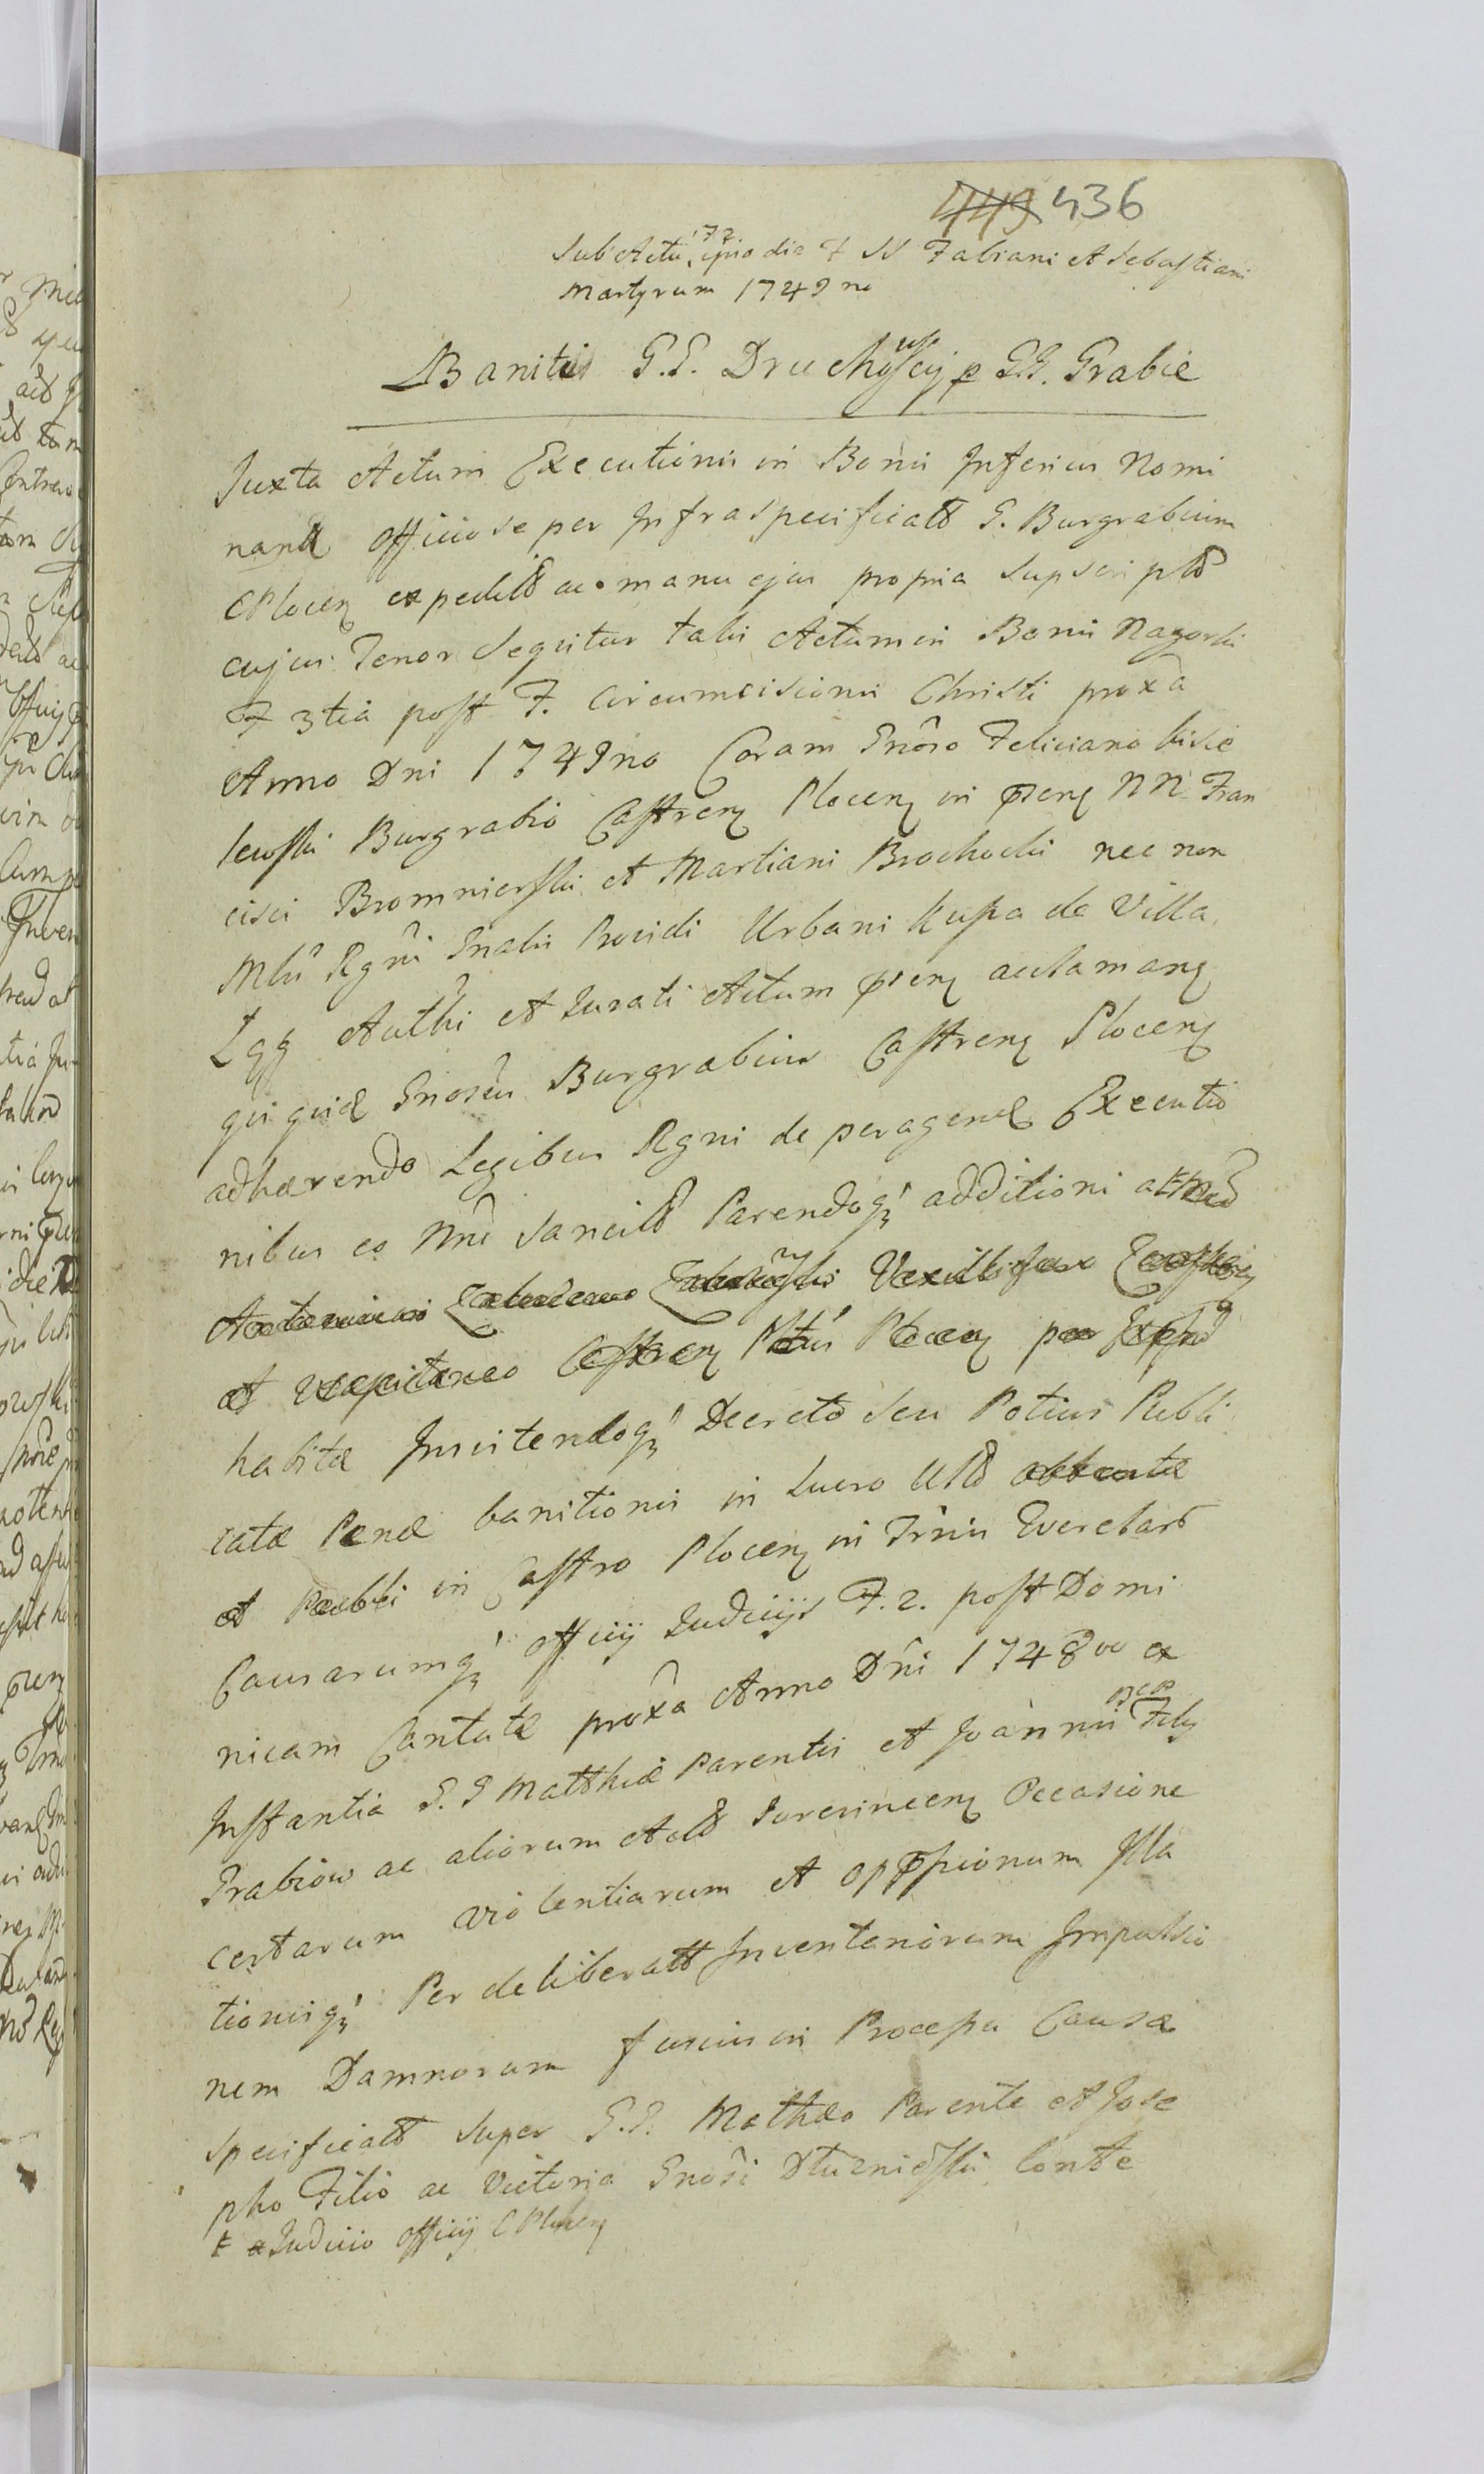 449 436
Sub Actu ipso die F SS Fabiani et Sebastiani
Martyrum 1749no
Banitus G.G. Druchowscy p G.G. Grabie
Juxta Actum Executionis in Bonis Inferius Nomi
nand officiose per Infraspecificatt G. Burgrabium
CPlocen expeditt ac manu ejus propria supscriptt
cujus Tenor sequitur talis Actum in Bonis Nagorki
F 3tia post F. Circumcisionis Christi proxa
Anno Dni 1749no Coram Gnoso Feliciano Kisie
lewski Burgrabio Castren Plocen in pren NN Fran
cisci Bromnierski et Martiani Brochocki nec non
Mlis Rgni Gnalis Providi Urbani Kupa de Villa
Lgg Authi et Jurati Actum pren aclaman
qui quid Gnosus Burgrabius Castren Plocen
adhaerendo Legibus Rgni de peragend Executio
nibus eo nne sancitt Parendoq additioni
Vexillifero
et Capitaneo Castren Pltus Plocen per
habita Insistendoq Decreto seu Potius Publi
catae Penae banitionis in Lucro
et Publi in Castro Plocen in Trnis Querelarr
Causarumq officij Judicijs F. 2. post Domi
nicam Cantate proxa Anno Dni 1748vo ex
Instantia G.G Matthiae Parentis et Joannis Filij
Grabiow ac aliorum Actt Jurevincen Occasione
certarum violentiarum et oppssionum Illa
tionisq Per deliberatt Inventariorum Impulsio
nem Damnorum fusius in Processu Causae
specificatt super G.G. Mathaeo Parente et Jose
pho Filio ac Victoria Gnosi Dluzniewski Conste
a Judicio officij C Plocen